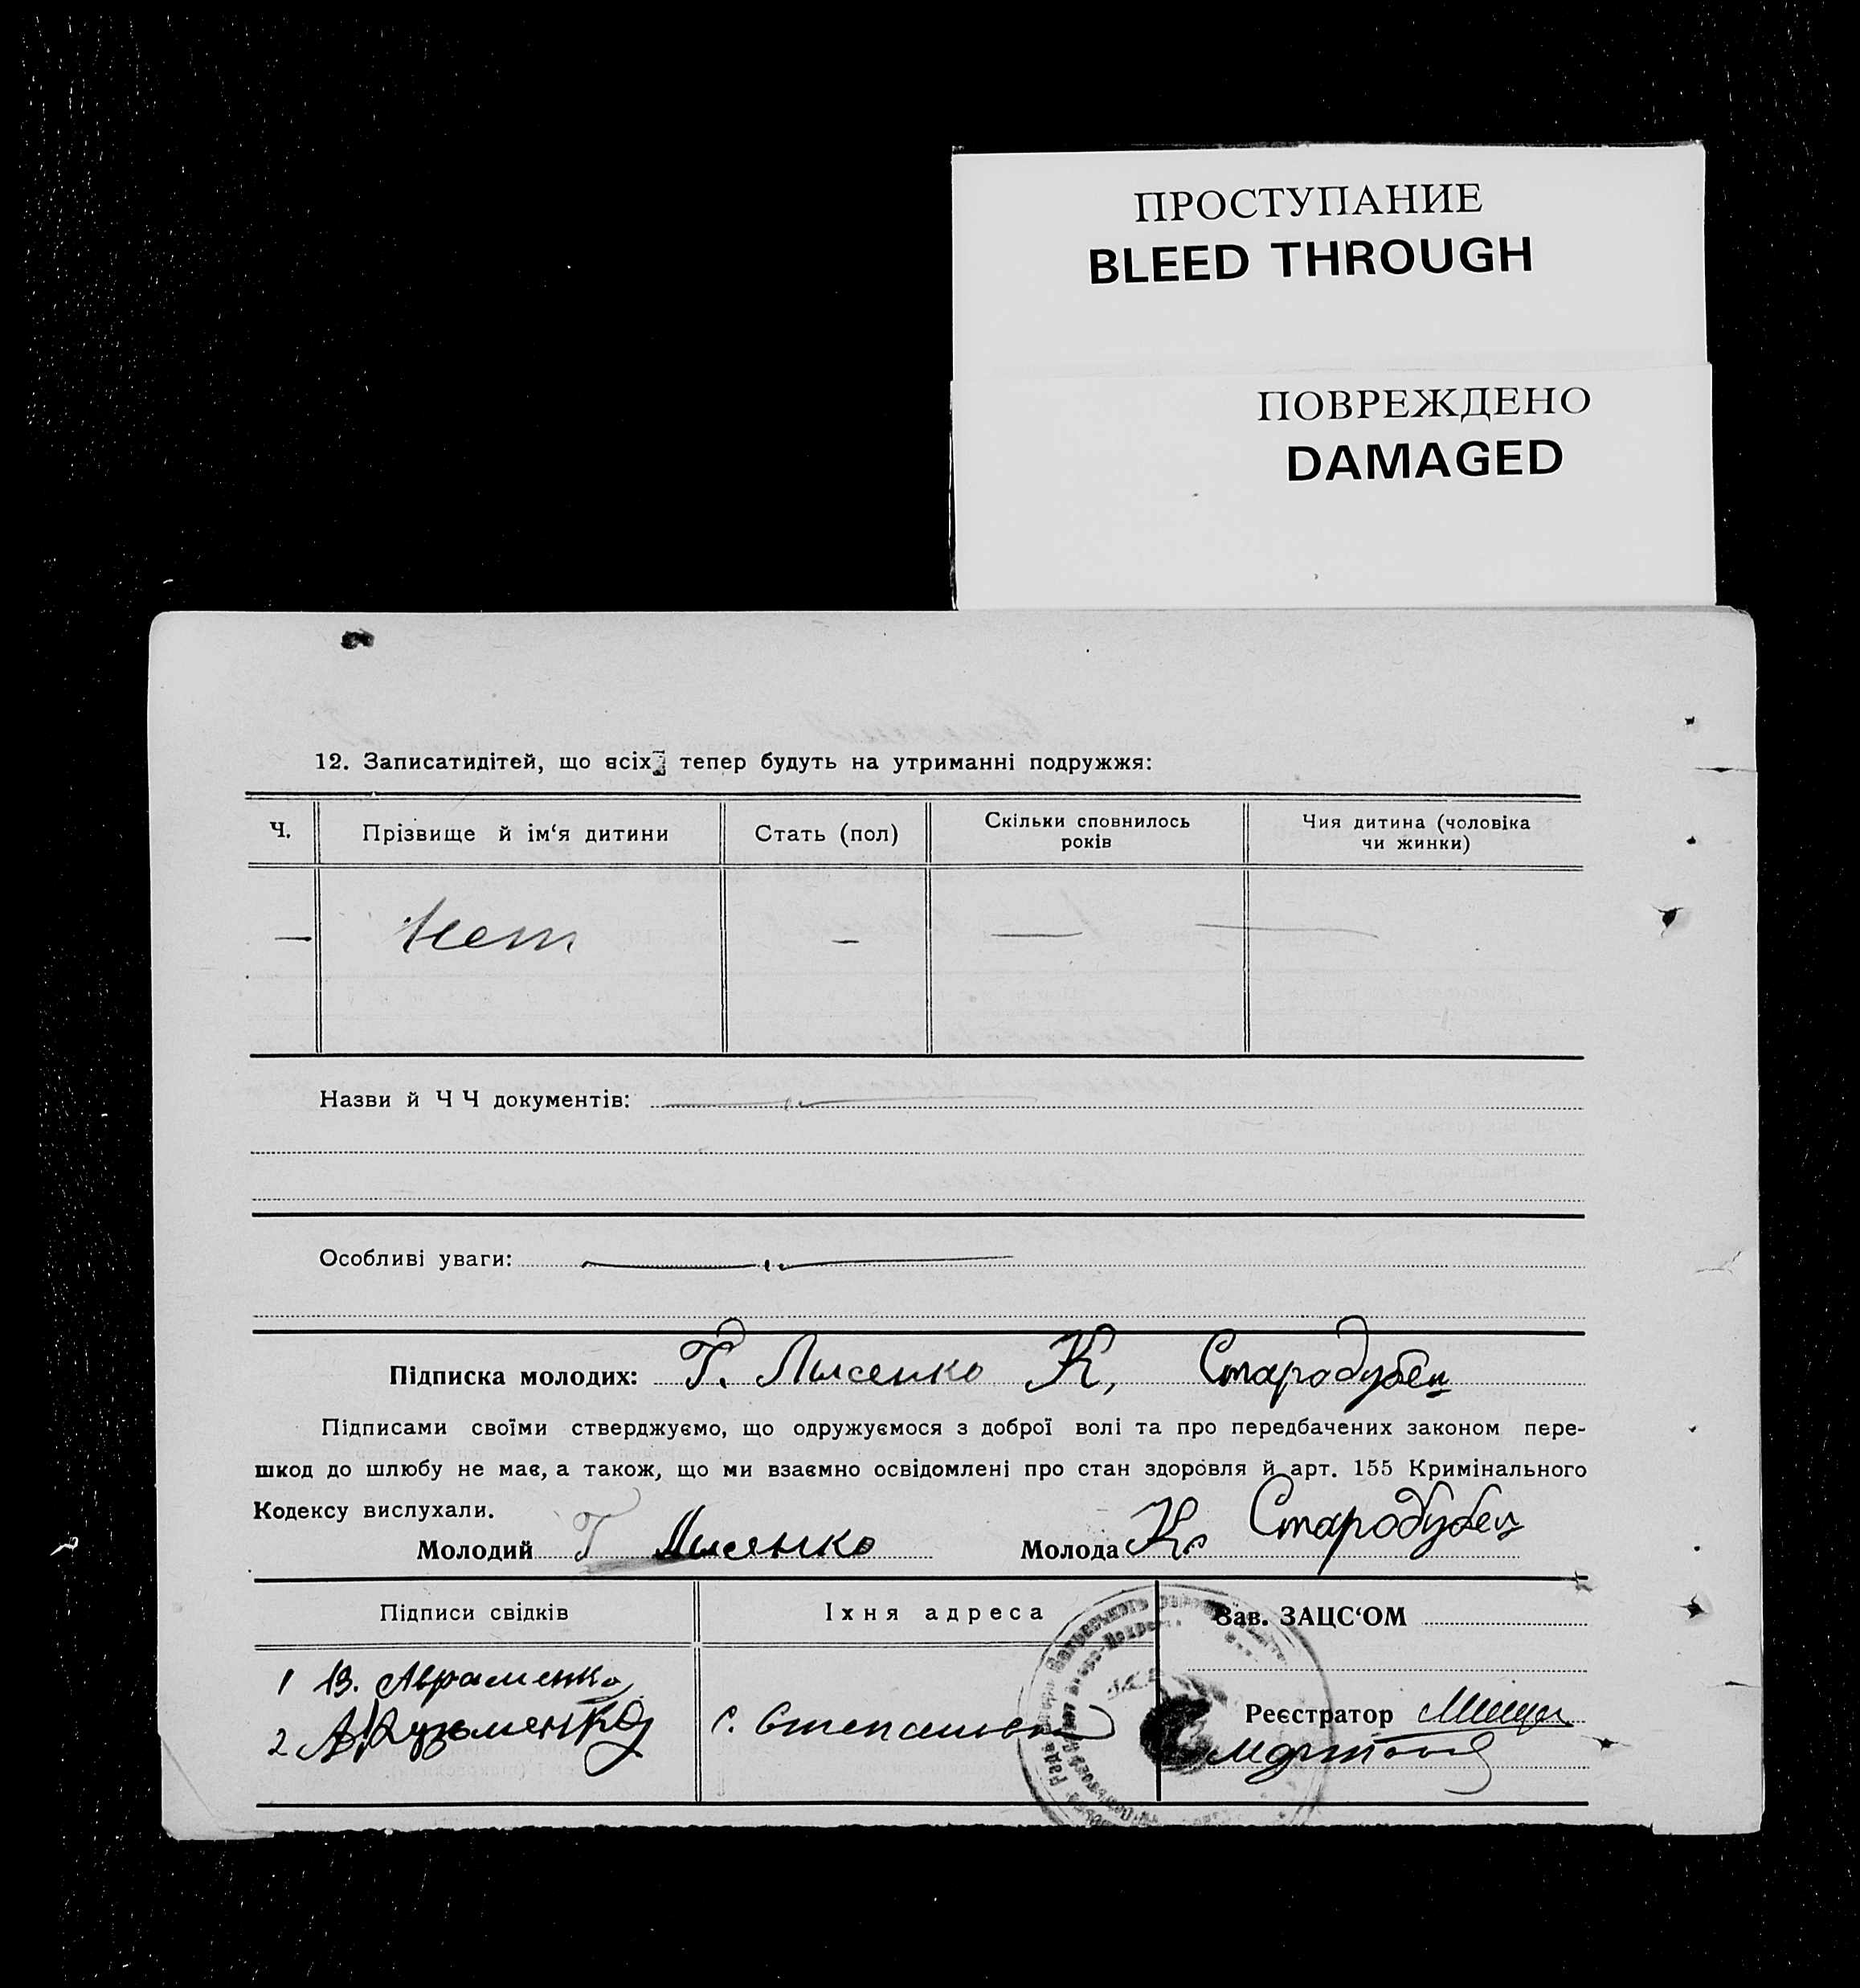 ПРОСТУПАНИЕ
BLEED THROUGH
ПОВРЕЖДЕНО
DAMAGED
12. Записатидітей, що всіх тепер будуть на утриманні подружжя:
Ч. Прізвище й ім‘я дитини Стать (пол) Скільки сповнилось років Чия дитина (чоловіка чи жинки)
— Нет — — —
Назви й Ч Ч документів:
Особливі уваги:
Підписка молодих: Г. Лысенко К, Стародубец
Підписами своїми стверджуємо, що одружуємося з доброї волі та про передбачених законом пере-
шкод до шлюбу не має, а також, що ми взаємно освідомлені про стан здоровля й арт. 155 Кримінального
Кодексу вислухали.
Молодий Г Лисянко Молода К. Стародубец
Підписи свідків Їхня адреса Зав. ЗАЦС‘ОМ
1 В. Авраменко
2 А. Кузьменко с. Реєстратор